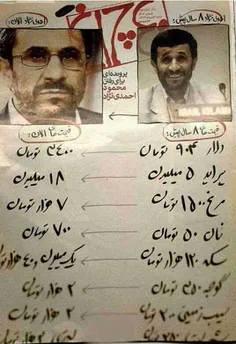 احمدی نژاد ۸ سال پیش:
احمدی نژاد الان:
پرونده‌ای
برای رفتن
محمود
احمدی‌نژاد
قیمت ها ۸ سال پیش:
قیمت ها الان:
دلار ۹۰۴ تومان
۳۴۰۰ تومان
پراید ۵ میلیون
۱۸ میلیون
مرغ ۱۵۰۰ تومان
۷ هزار تومان
نان ۵۰ تومان
۷۰۰ تومان
سکه ۱۲۰ هزار تومان
یک میلیون و ۴۰۰ هزار
گوجه ۲۵۰ تومان
۲ هزار تومان
سیب زمینی ۲۰۰ تومان
۲ هزار تومان